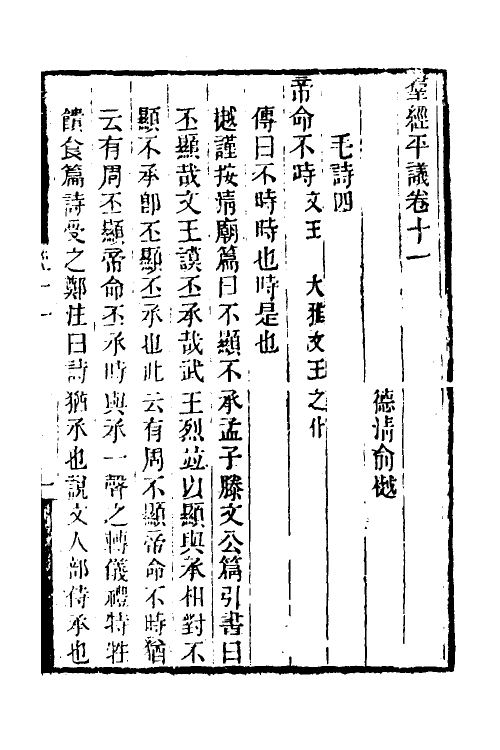 羣經平議卷十一
德淸俞樾
毛詩四
帝命不時文王 大雅文王之什
傳曰不時時也時是也
樾謹按淸廟篇曰不顯不承孟子滕文公篇引書曰
丕顯哉文王謨丕承哉武王烈竝以顯與承相對不
顯不承卽丕顯丕承也此云有周不顯帝命不時猶
云有周丕顯帝命丕承時與承一聲之轉儀禮特牲
饋食篇詩受之鄭注曰詩猶承也說文人部侍承也